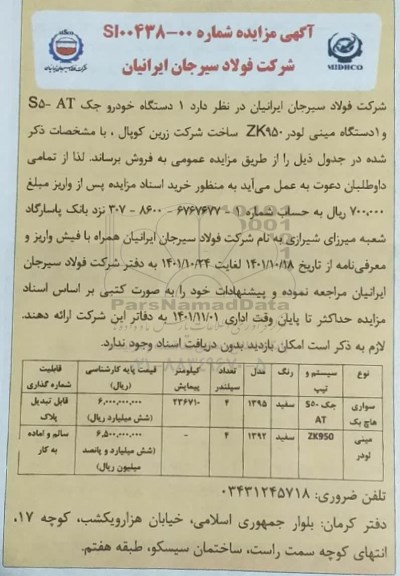 آگهی مزایده شماره SI۰۰۴۳۸-۰۰
شرکت فولاد سیرجان ایرانیان
MIDHCO
شرکت فولاد سیرجان ایرانیان در نظر دارد ۱ دستگاه خودرو جک S۵- AT
و ۱دستگاه مینی لودر ZK۹۵۰ ساخت شرکت زرین کوپال ، با مشخصات ذکر
شده در جدول ذیل را از طریق مزایده عمومی به فروش برساند. لذا از تمامی
داوطلبان دعوت به عمل می‌آید به منظور خرید اسناد مزایده پس از واریز مبلغ
۷۰۰,۰۰۰ ریال به حساب شماره ۱ - ۶۷۶۷۶۷۷ - ۸۶۰۰ - ۳۰۷ نزد بانک پاسارگاد
شعبه میرزای شیرازی به نام شرکت فولاد سیرجان ایرانیان همراه با فیش واریز و
معرفی‌نامه از تاریخ ۱۴۰۱/۱۰/۱۸ لغایت ۱۴۰۱/۱۰/۲۴ به دفتر شرکت فولاد سیرجان
ایرانیان مراجعه نموده و پیشنهادات خود را به صورت کتبی بر اساس اسناد
مزایده حداکثر تا پایان وقت اداری ۱۴۰۱/۱۱/۰۱ به دفاتر این شرکت ارائه دهند.
لازم به ذکر است امکان بازدید بدون دریافت اسناد وجود ندارد.
ParsNamadData
نوع سیستم و تیپ رنگ مدل تعداد سیلندر کیلومتر پیمایش قیمت پایه کارشناسی (ریال) قابلیت شماره گذاری
سواری هاچ بک جک S۵- AT سفید ۱۳۹۵ ۴ ۲۳۶۷۱۰ ۶,۰۰۰,۰۰۰,۰۰۰ (شش میلیارد ریال) قابل تبدیل پلاک
مینی لودر ZK950 سفید ۱۳۹۲ ۴ - ۶,۵۰۰,۰۰۰,۰۰۰ (شش میلیارد و پانصد میلیون ریال) سالم و اماده به کار
تلفن ضروری: ۰۳۴۳۱۲۴۵۷۱۸
دفتر کرمان: بلوار جمهوری اسلامی، خیابان هزارویکشب، کوچه ۱۷،
انتهای کوچه سمت راست، ساختمان سیسکو، طبقه هفتم.